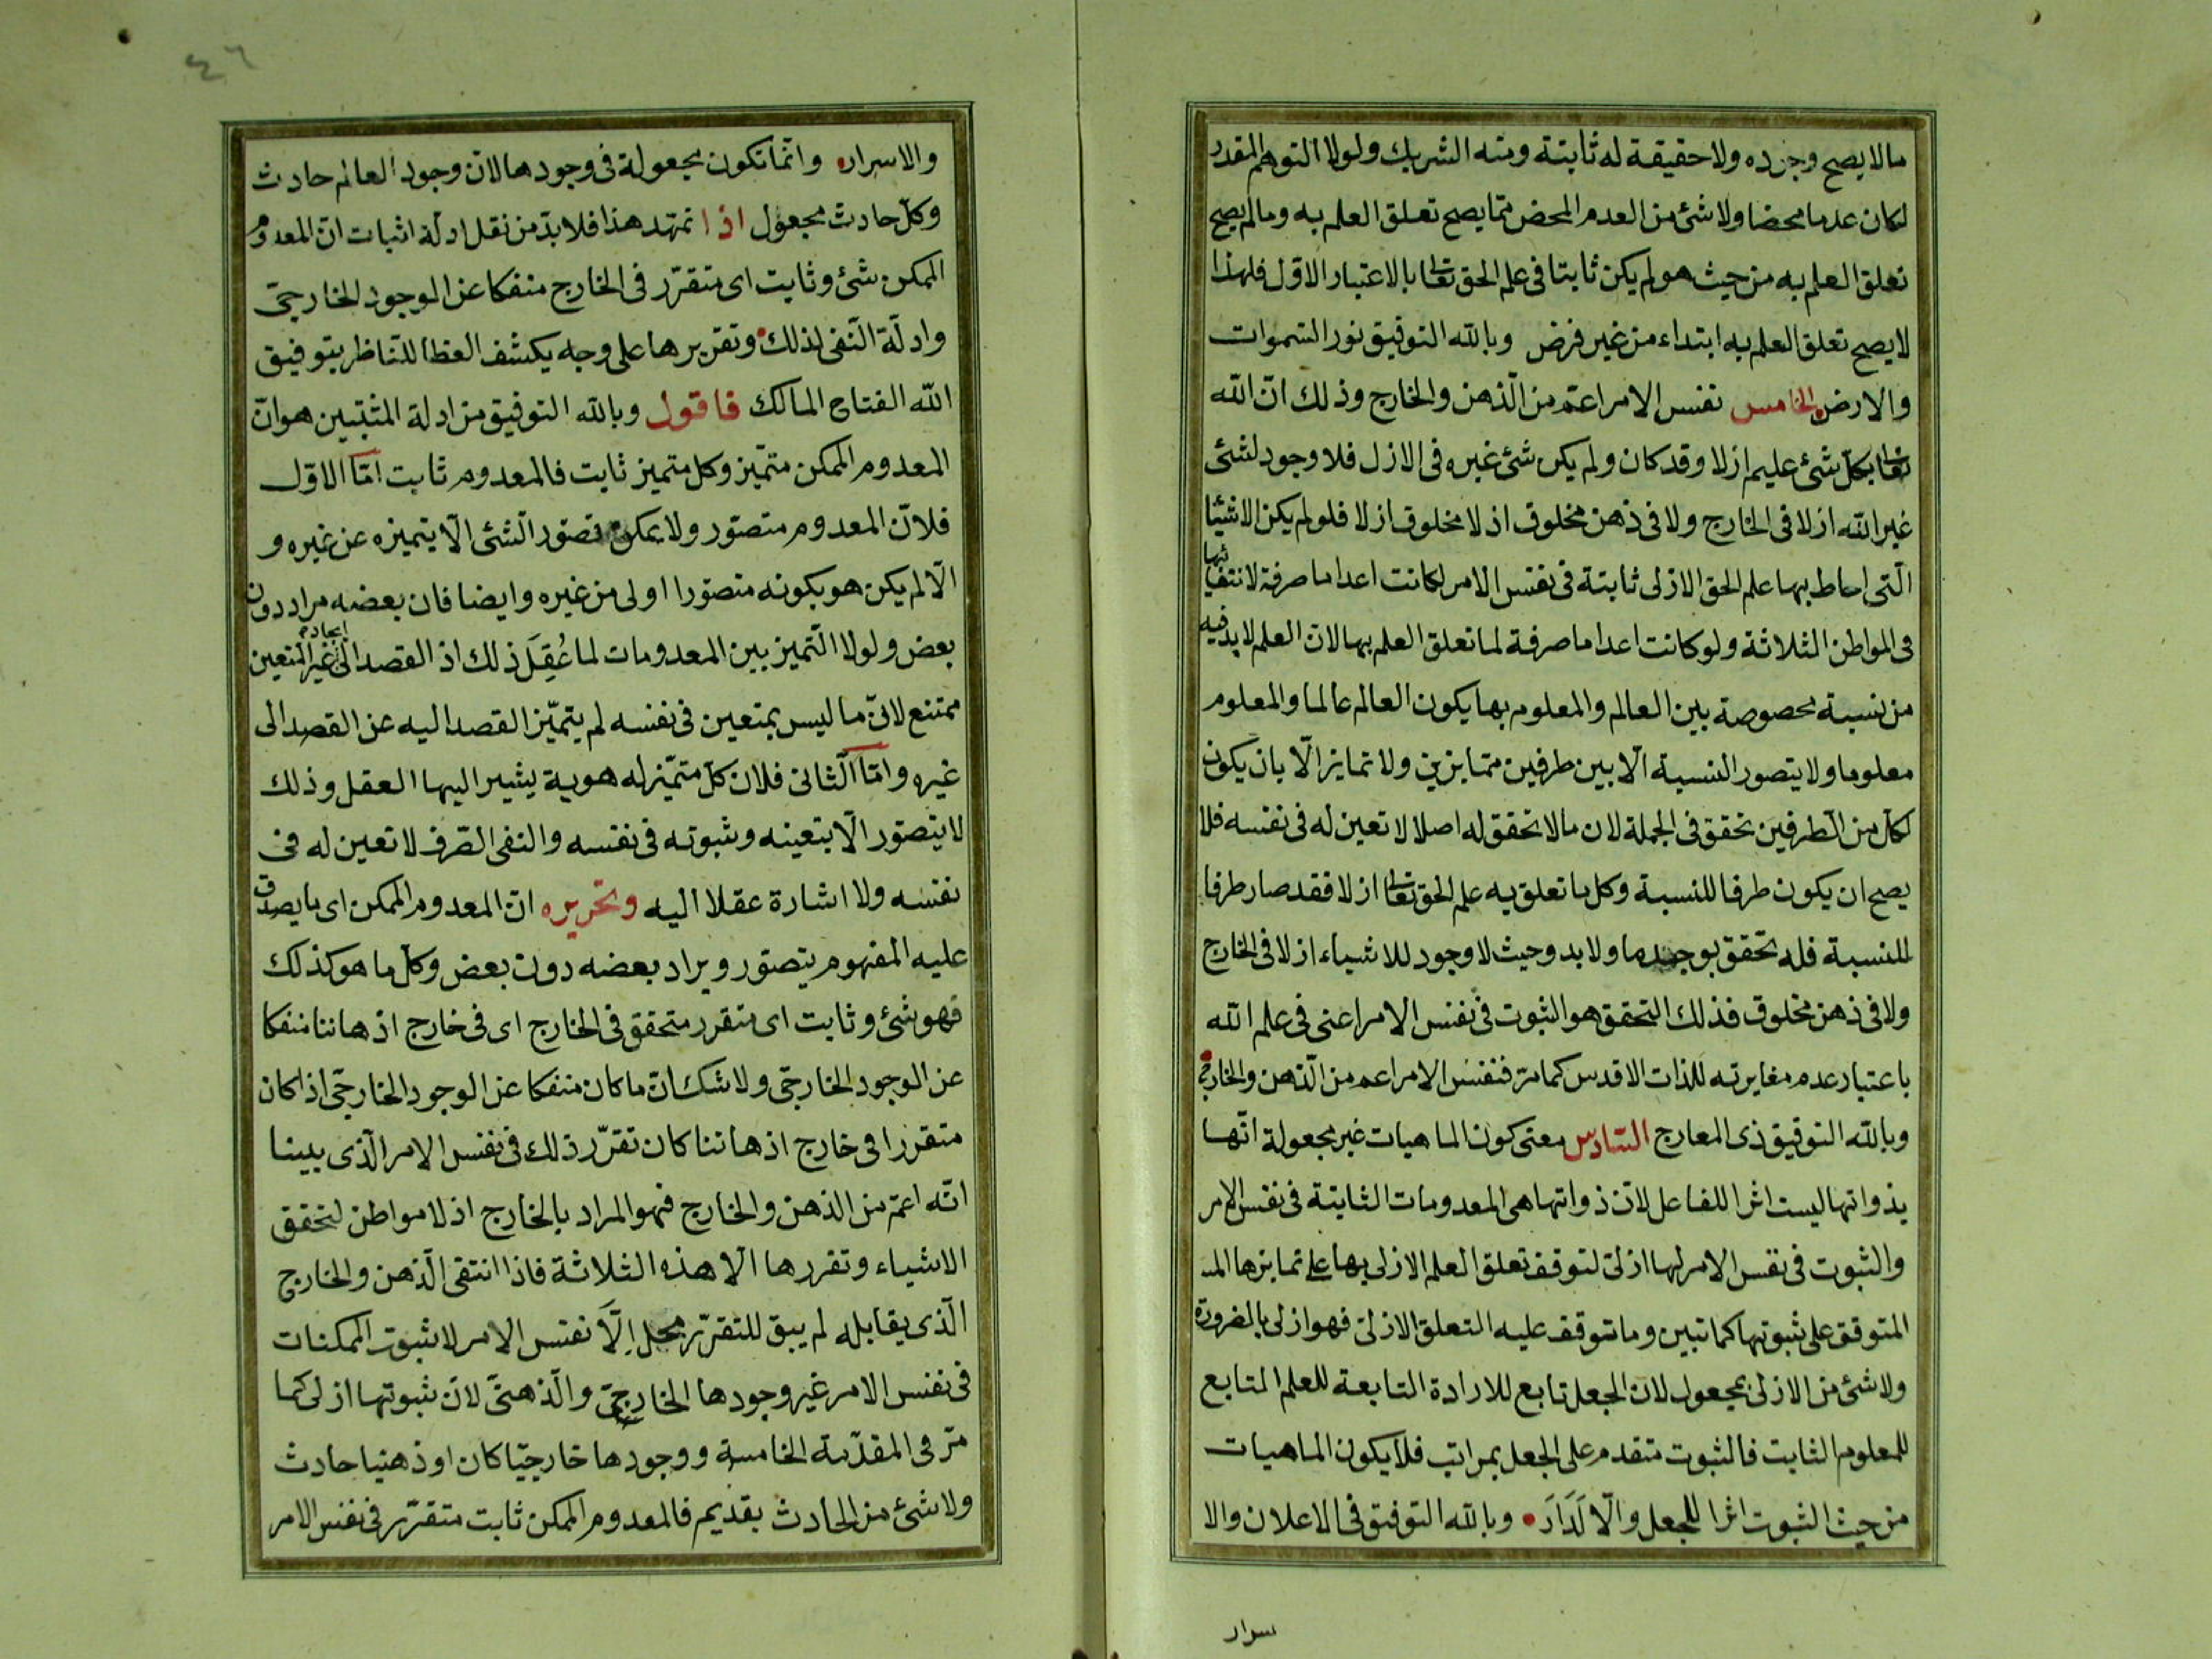 مالا يصح وجوده ولا حقيقة له ثابتة ومنه الشريك ولولا التوهم المقدر
لكان عدما محضا ولا شئ من العدم المحض مما يصح تعلق العلم به ومالم يصح
تعلق العلم به من حيث هو لم يكن ثابتا في علم الحق تعالى بالاعتبار الاول فلهذا
لا يصح تعلق العلم به ابتداء من غير فرض وبالله التوفيق نور السموات
والارض الخامس نفس الامر اعم من الذهن والخارج وذلك ان الله
تعالى بكل شئ عليم ازلا وقد كان ولم يكن شئ غيره في الازل فلا وجود لشئ
غير الله ازلا في الخارج ولا في ذهن مخلوق اذ لا مخلوق ازلا فلو لم يكن الاشيا
التي احاط بها علم الحق الازلى ثابتة في نفس الامر لكانت اعداما صرفة لانتفائها
في المواطن الثلاثة ولو كانت اعداما صرفة لما تعلق العلم بها لان العلم لا بد فيه
من نسبة مخصوصة بين العالم والمعلوم بها يكون العالم عالما والمعلوم
معلوما ولا يتصور النسبة الا بين طرفين متمايزين ولا تمايز الا بان يكون
لكل من الطرفين تحقق في الجملة لان مالا تحقق له اصلا لا تعين له في نفسه فلا
يصح ان يكون طرفا للنسبة وكل ما تعلق به علم الحق تعالى ازلا فقد صار طرفا
للنسبة فله تحقق بوجه ما ولا بد وحيث لا وجود للاشياء ازلا في الخارج
ولا في ذهن مخلوق فذلك التحقق هو الثبوت في نفس الامر اعنى في علم الله
باعتبار عدم مغايرته للذات الاقدس كما مر فنفس الامر اعم من الذهن والخارج
وبالله التوفيق ذى المعارج السادس معنى كون الماهيات غير مجعولة انها
بذواتها ليست اثرا للفاعل لان ذواتها هى المعدومات الثابتة في نفس الامر
والثبوت في نفس الامر لها ازلى لتوقف تعلق العلم الازلى بها على تمايزها المـ
المتوقف على ثبوتها كما تبين وما توقف عليه التعلق الازلى فهو ازلى بالضرورة
ولا شئ من الازلى بمجعول لان الجعل تابع للارادة التابعة للعلم التابع
للمعلوم الثابت فالثبوت متقدم على الجعل بمراتب فلا يكون الماهيات
من حيث الثبوت اثرا للجعل والا لدار وبالله التوفيق في الاعلان والا
سرار
٤٦
والاسرار وانما تكون مجعولة في وجودها لان وجود العالم حادث
وكل حادث مجعول اذا تمهد هذا فلا بد من نقل ادلة اثبات ان المعدوم
الممكن شئ وثابت اى متقرر في الخارج منفكا عن الوجود الخارجى
وادلة النفى لذلك وتقريرها على وجه يكشف الغطا للناظر بتوفيق
الله الفتاح المالك فاقول وبالله التوفيق من ادلة المثبتين هو ان
المعدوم الممكن متميز وكل متميز ثابت فالمعدوم ثابت اما الاول
فلان المعدوم متصور ولا يمكن تصور الشئ الا بتميزه عن غيره و
الا لم يكن هو بكونه متصورا اولى من غيره وايضا فان بعضه مراد دون
بعض ولولا التميز بين المعدومات لما عُقِلَ ذلك اذ القصد الى ايجاد غير المتعين
ممتنع لان ما ليس بمتعين في نفسه لم يتميز القصد اليه عن القصد الى
غيره واما الثانى فلان كل متميز له هوية يشير اليها العقل وذلك
لا يتصور الا بتعينه وثبوته في نفسه والنفى الصرف لا تعين له في
نفسه ولا اشارة عقلا اليه وتحريره ان المعدوم الممكن اى ما يصدق
عليه المفهوم يتصور ويراد بعضه دون بعض وكل ما هو كذلك
فهو شئ وثابت اى متقرر متحقق في الخارج اى في خارج اذهاننا منفكا
عن الوجود الخارجى ولا شك ان ما كان منفكا عن الوجود الخارجى اذا كان
متقررا في خارج اذهاننا كان تقرر ذلك في نفس الامر الذى بينا
انه اعم من الذهن والخارج فهو المراد بالخارج اذ لا مواطن لتحقق
الاشياء وتقررها الا هذه الثلاثة فاذا انتفى الذهن والخارج
الذى يقابله لم يبق للتقرر محل اِلَّا نفس الامر لا ثبوت الممكنات
في نفس الامر غير وجودها الخارجى والذهنى لان ثبوتها ازلى كما
مر في المقدمة الخامسة ووجودها خارجيا كان او ذهنيا حادث
ولا شئ من الحادث بقديم فالمعدوم الممكن ثابت متقرر في نفس الامر